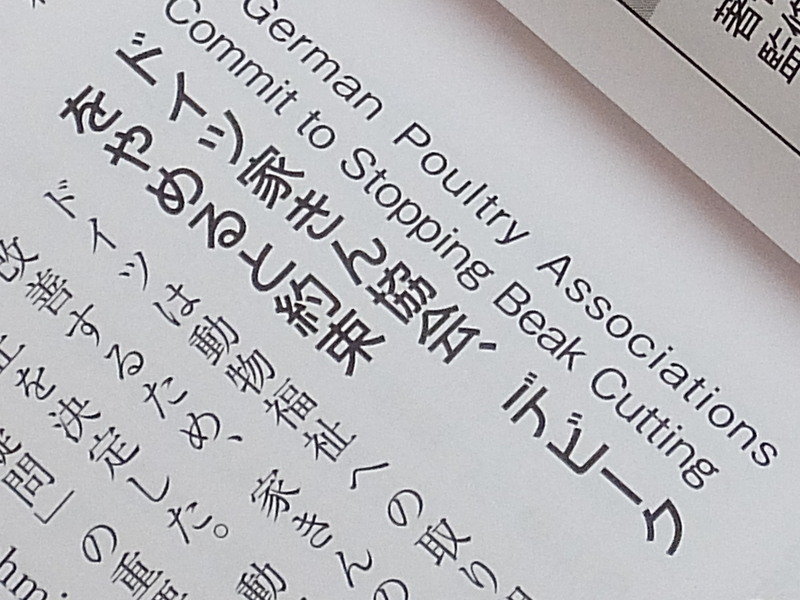 German Poultry Associations
Commit to Stopping Beak Cutting
ドイツ家きん協会、デビーク
をやめると約束
ドイツは動物福祉への取り
改善するため、家きんの
を決定した。動
問」の重
hm.
書
監修